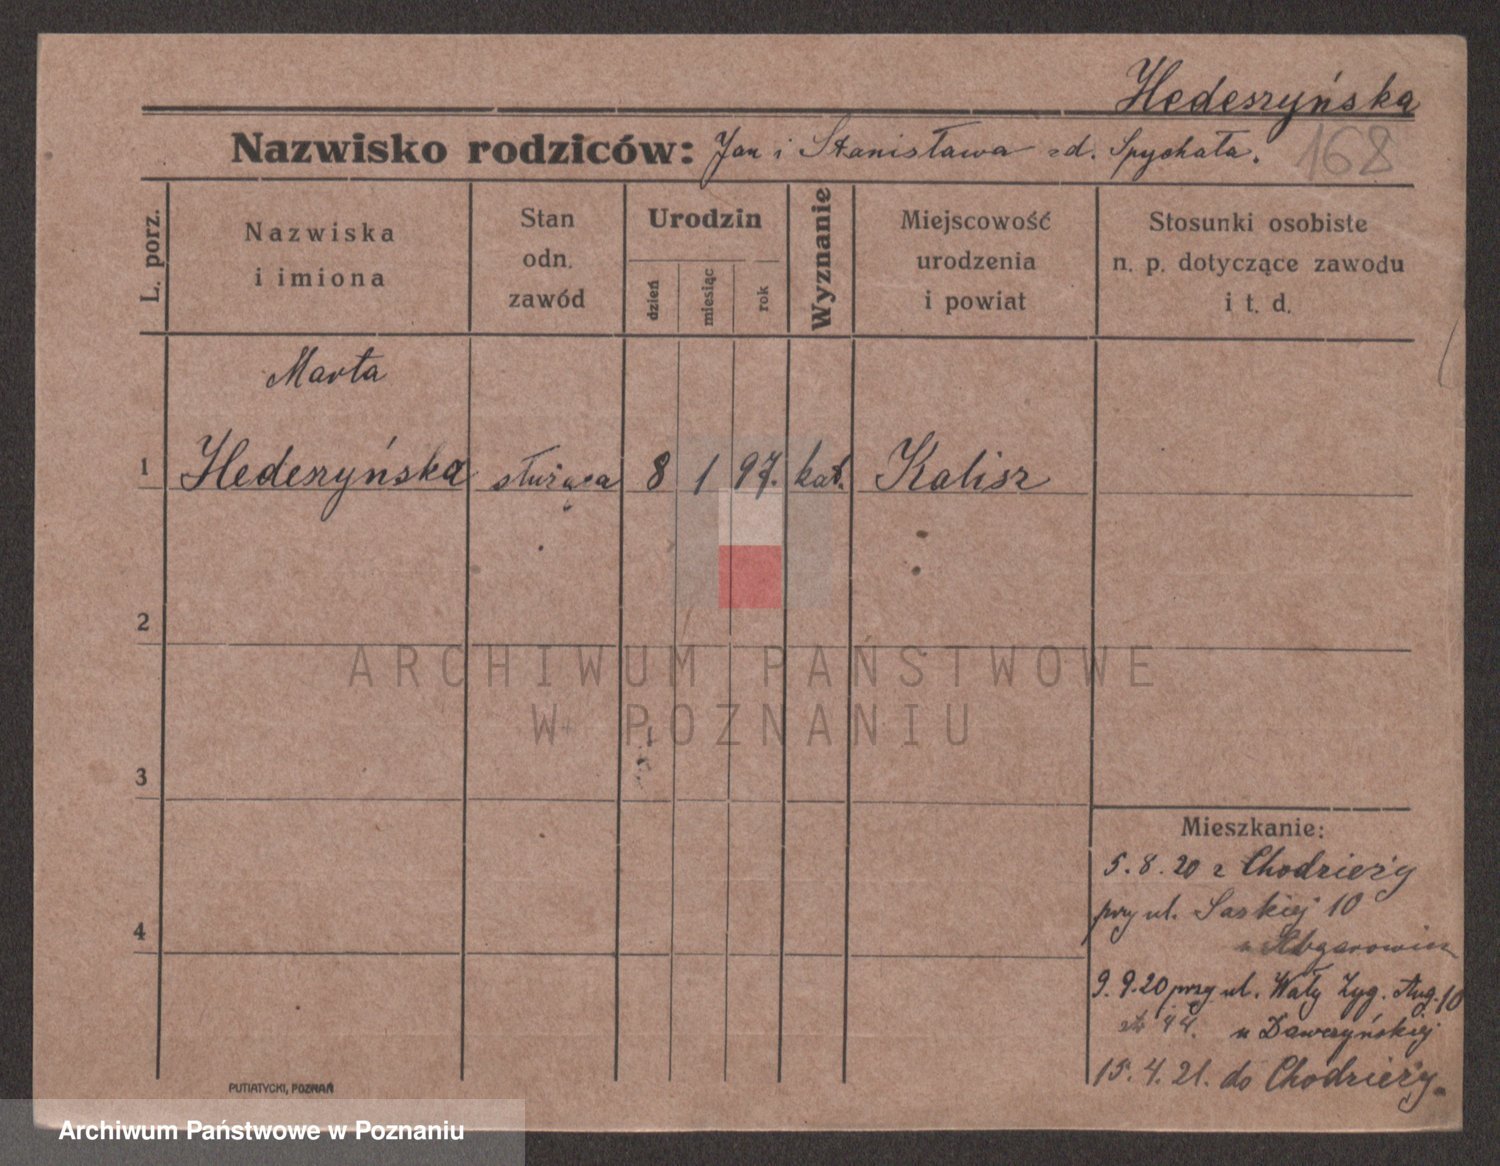 Hedeszyńska
Nazwisko rodziców: Jan i Stanisława zd. Spychała.
168
L. porz.
Nazwiska
i imiona
Stan
odn.
zawód
Urodzin
dzień
miesiąc
rok
Wyznanie
Miejscowość
urodzenia
i powiat
Stosunki osobiste
n. p. dotyczące zawodu
i t. d.
Marta
1 Hedeszyńska służąca 8 1 97. kat. Kalisz
2
ARCHIWUM PAŃSTWOWE
W POZNANIU
3
4
Mieszkanie:
5. 8. 20 z Chodzieży
przy ul. Saskiej 10
u Abgarowicz
9. 9. 20 przy ul. Wały Zyg. Aug. 10
44. u Dawczyńskiej
15. 4. 21. do Chodzieży.
PUTIATYCKI, POZNAŃ
Archiwum Państwowe w Poznaniu